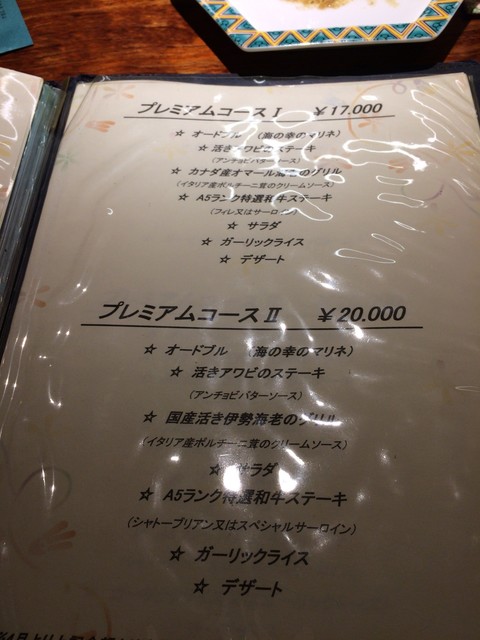 プレミアムコースⅠ ￥17.000
☆ オードブル (海の幸のマリネ)
☆ 活きアワビのステーキ
(アンチョビバターソース)
☆ カナダ産オマール海老のグリル
(イタリア産ポルチーニ茸のクリームソース)
☆ A5ランク特選和牛ステーキ
(フィレ又はサーロイン)
☆ サラダ
☆ ガーリックライス
☆ デザート
プレミアムコースⅡ ￥20.000
☆ オードブル (海の幸のマリネ)
☆ 活きアワビのステーキ
(アンチョビバターソース)
☆ 国産活き伊勢海老のグリル
(イタリア産ポルチーニ茸のクリームソース)
☆ サラダ
☆ A5ランク特選和牛ステーキ
(シャトーブリアン又はスペシャルサーロイン)
☆ ガーリックライス
☆ デザート